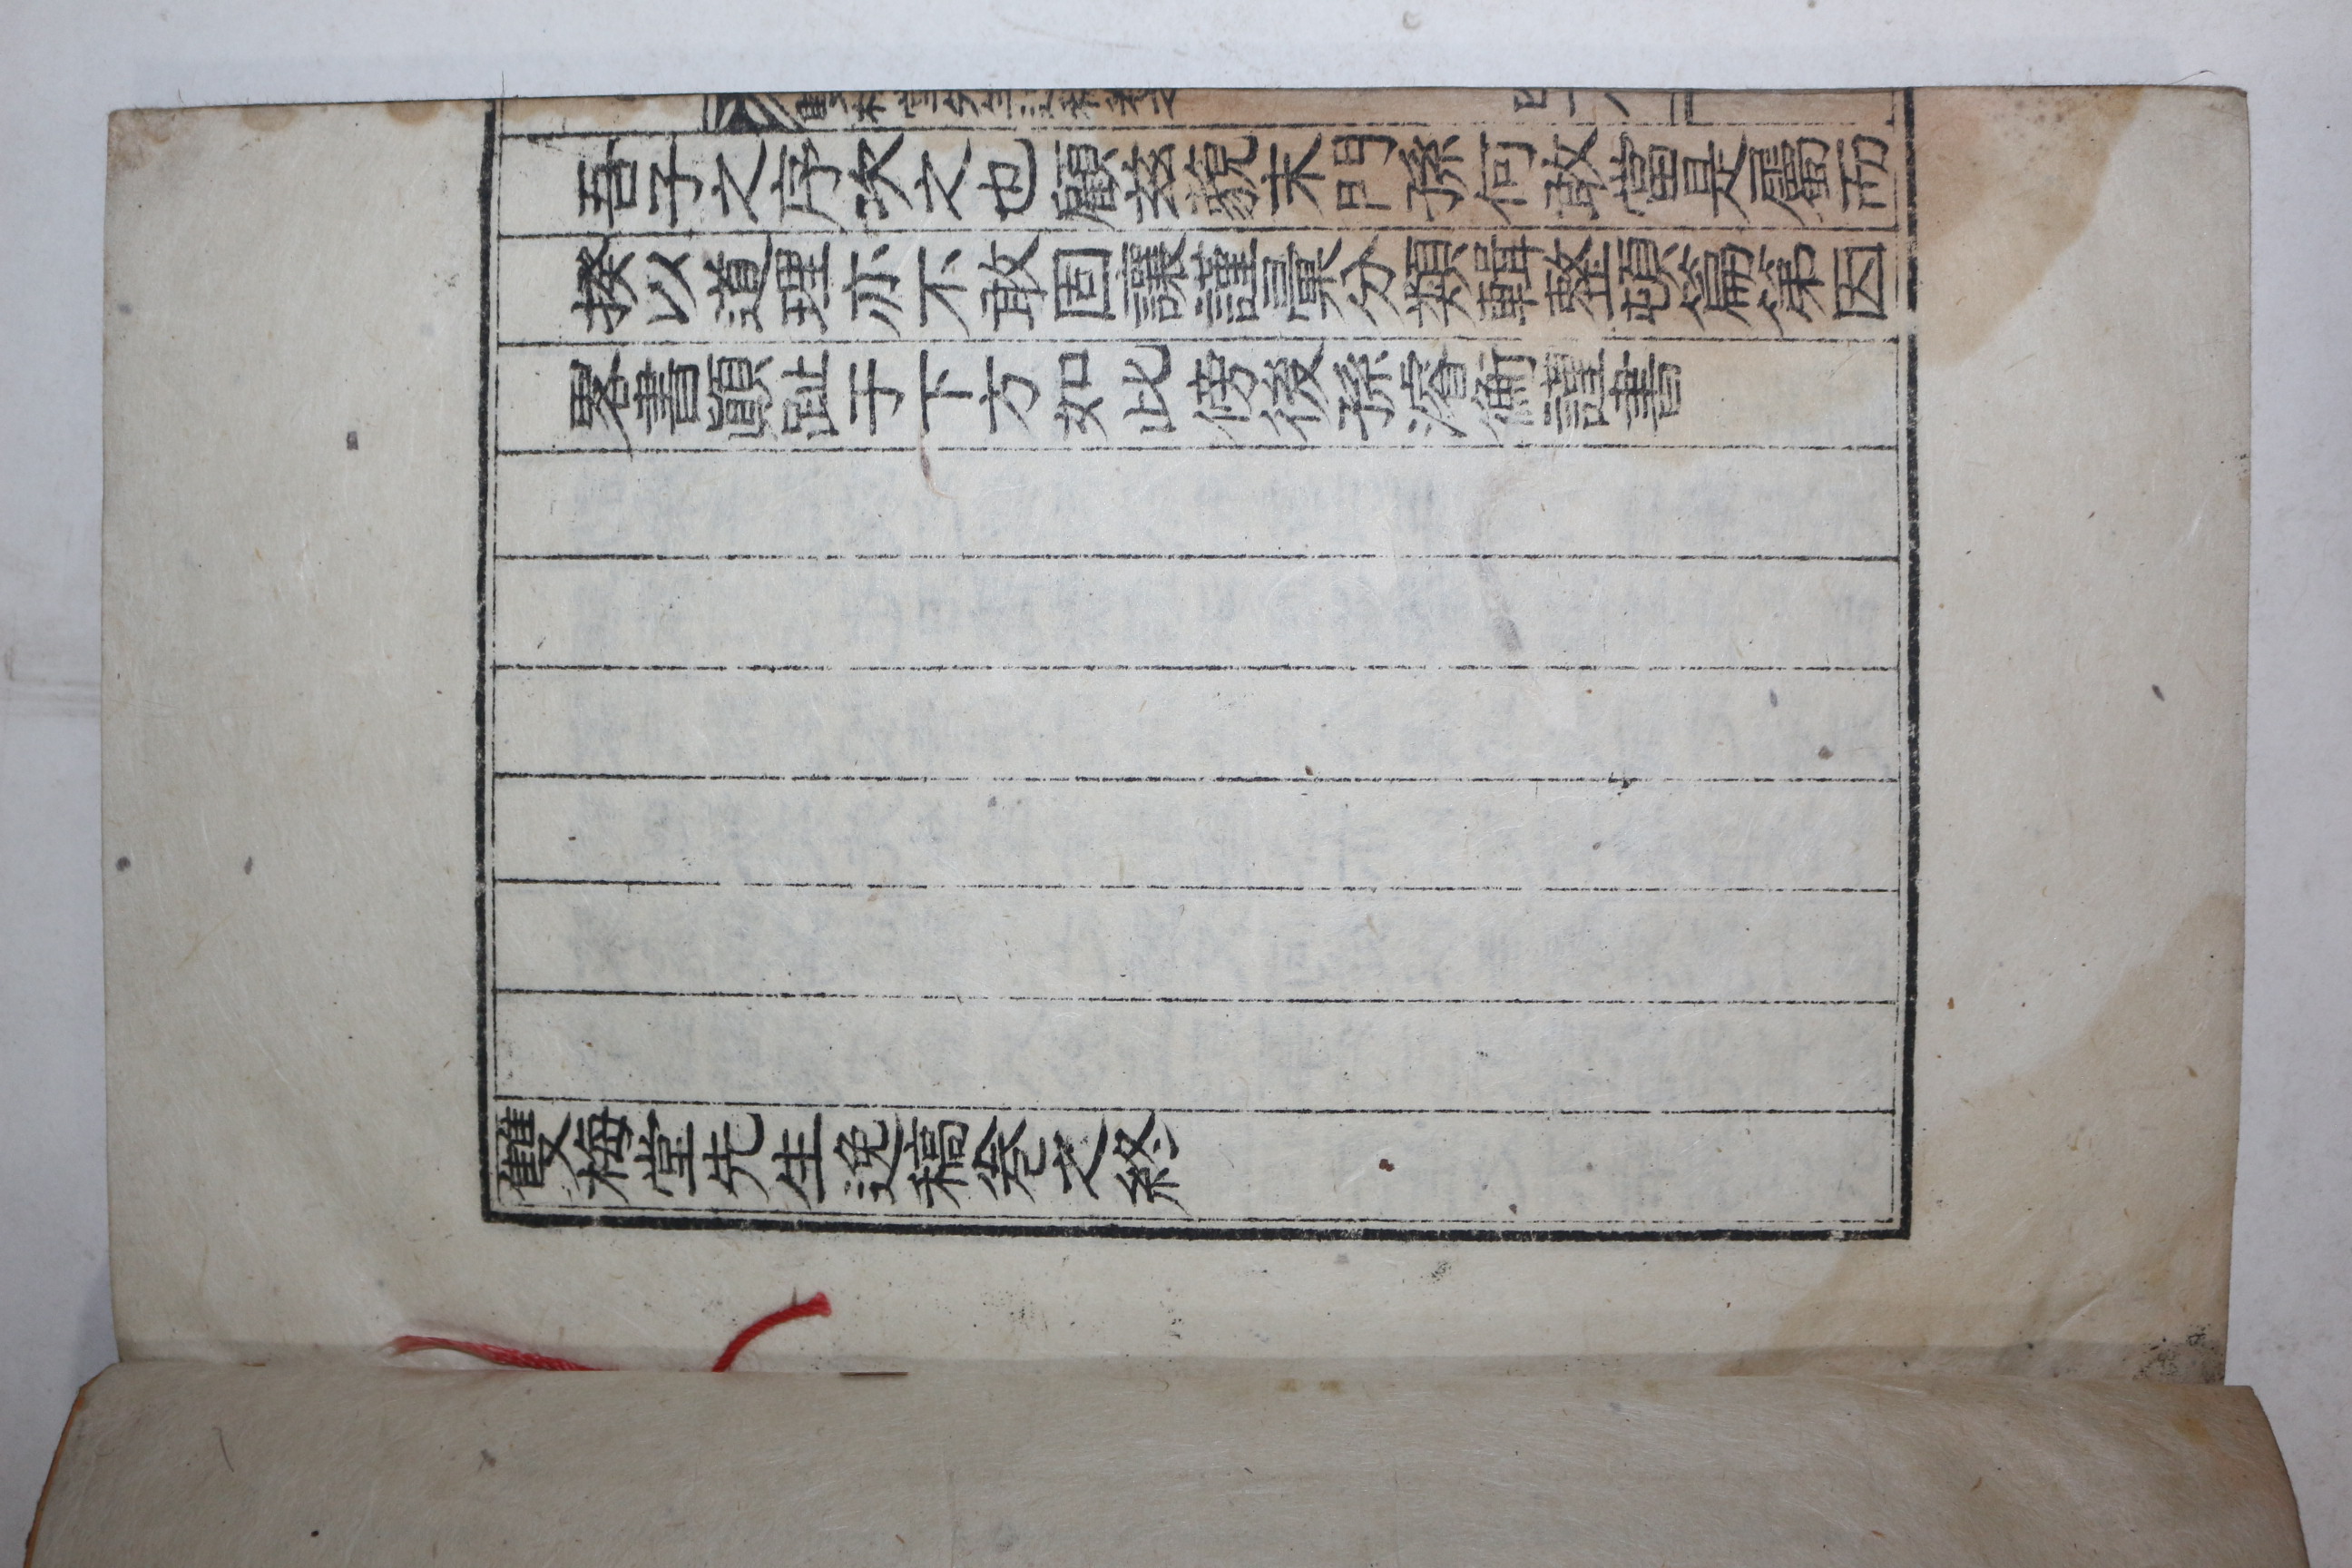 雙梅堂先生逸稿卷之
吾子之序次之也顧茲藐末門孫何敢當是屬而
揆以道理亦不敢固讓謹彙分類輯整頓篇第因
畧書顚趾于下方如此傍後孫濬衡謹書
雙梅堂先生逸稿卷之終